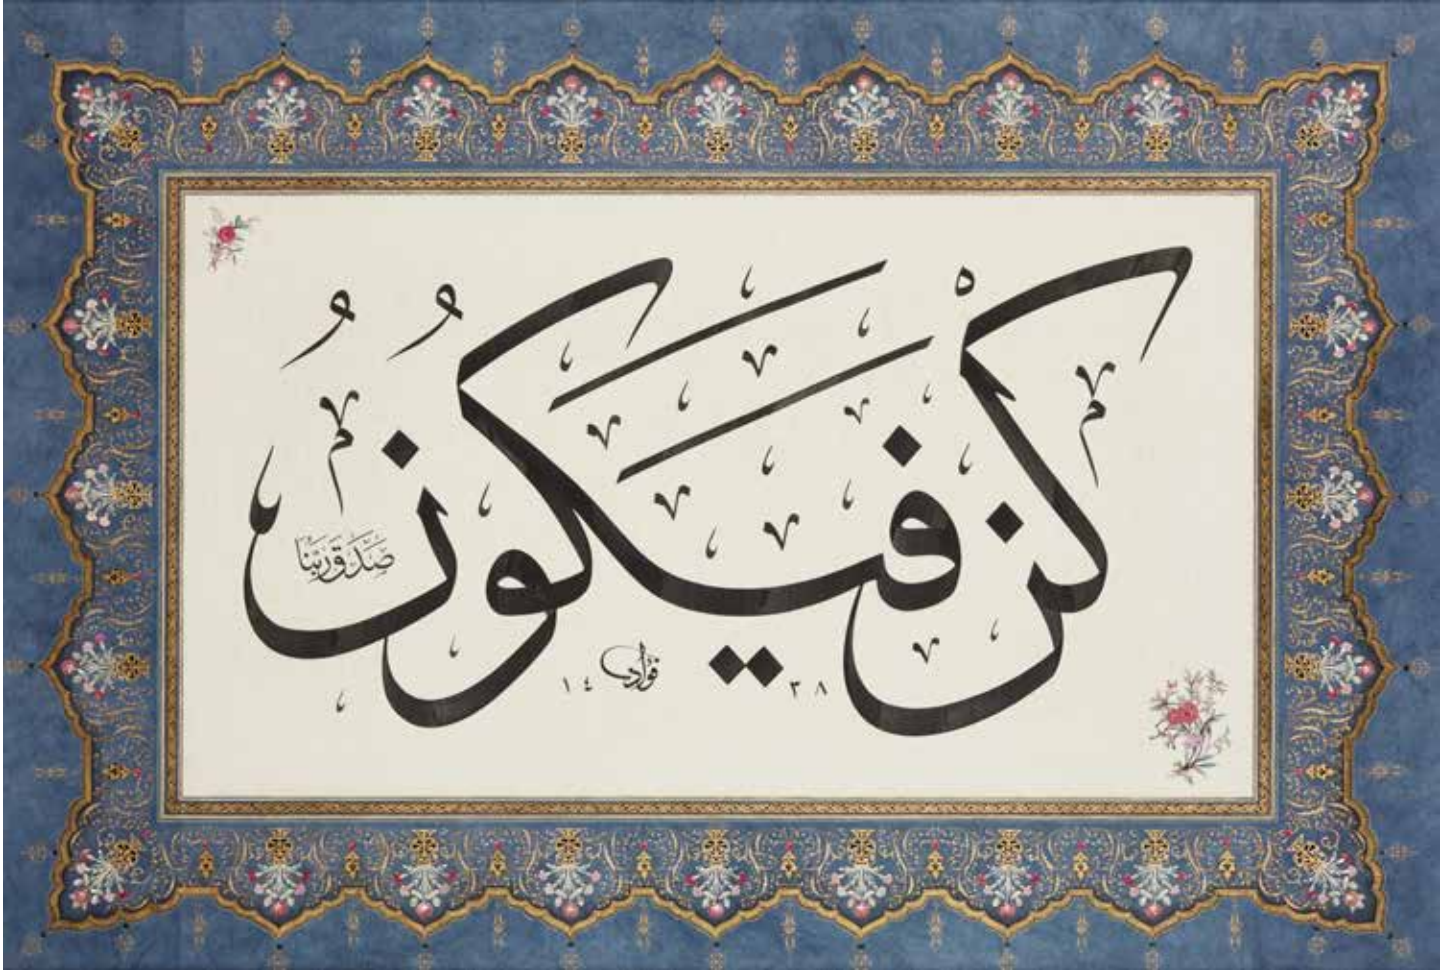 كُنْ فَيَكُونُ
صَدَقَ رَبُّنَا
فؤاد
١٤٣٨